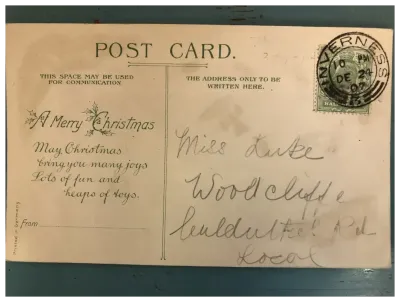 POST CARD.
THIS SPACE MAY BE USED
FOR COMMUNICATION
A Merry Christmas
May Christmas
bring you many joys
Lots of fun and
heaps of toys.
From
THE ADDRESS ONLY TO BE
WRITTEN HERE.
INVERNESS
10 PM
DE 24
Miss Luke
Woodcliffe
Culduthel Rd
Local